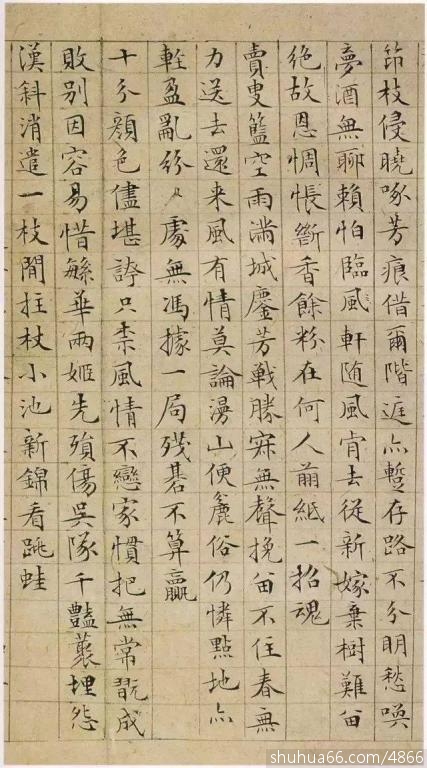 節枝侵曉啄芳痕借爾階庭亦蹔存路不分明愁喚
夢酒無聊賴怕臨風軒随風肯去從新嫁棄樹難畱
絶故恩惆悵斷香餘粉在何人剪紙一招魂
賣叟籃空雨滿城鏖芳戰勝寂無聲挽畱不住春無
力送去還来風有情莫論漫山便麄俗仍憐點地亦
輕盈亂紛〻處無馮據一局殘碁不算贏
十分顏色儘堪誇只柰風情不戀家慣把無常翫成
敗別因容易惜繁華兩姬先殞傷吳隊千豔叢埋怨
漢斜消遣一枝閒拄杖小池新錦看跳蛙
shuhua66.com/4866